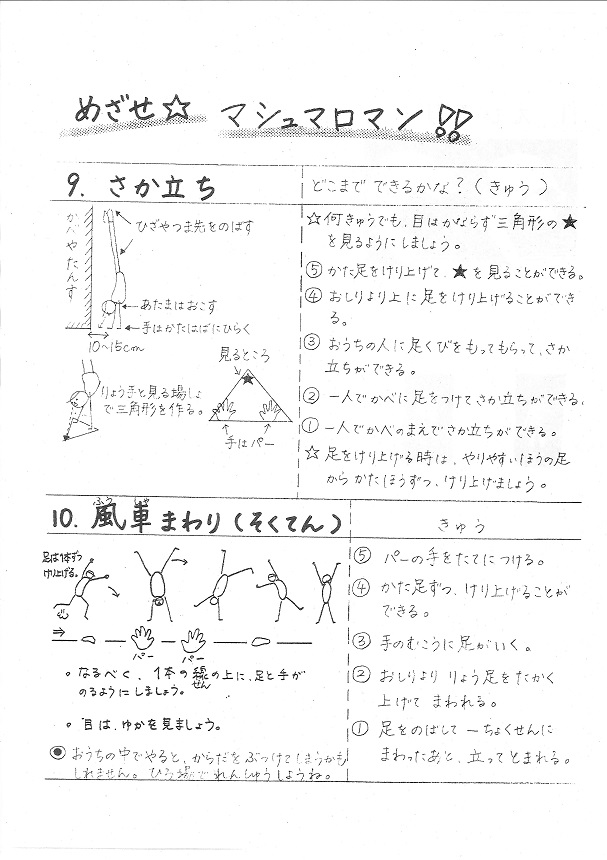 めざせ☆ マシュマロマン!!
9. さか立ち
どこまで できるかな?(きゅう)
かべやたんす
ひざやつま先をのばす
あたまはおこす
手はかたはばにひらく
10~15cm
見るところ
りょう手と見る場しょ
で三角形を作る。
手はパー
☆ 何きゅうでも、目はかならず三角形の★
を見るようにしましょう。
⑤ かた足をけり上げて、★を見ることができる。
④ おしりより上に足をけり上げることができ
る。
③ おうちの人に足くびをもってもらって、さか
立ちができる。
② 一人でかべに足をつけてさか立ちができる。
① 一人でかべのまえでさか立ちができる。
☆ 足をけり上げる時は、やりやすいほうの足
から かたほうずつ、けり上げましょう。
10. 風車まわり(そくてん)
ふう しゃ
きゅう
足は1本ずつ
けり上げる。
パー パー
。なるべく、1本の線の上に、足と手が
せん
のるようにしましょう。
。目は、ゆかを見ましょう。
◉ おうちの中でやると、からだをぶつけてしまうかも
しれません。ひろ場でれんしゅうしようね。
⑤ パーの手をたてにつける。
④ かた足ずつ、けり上げることが
できる。
③ 手のむこうに足がいく。
② おしりより りょう足をたかく
上げて まわれる。
① 足をのばして 一ちょくせんに
まわったあと、立ってとまれる。